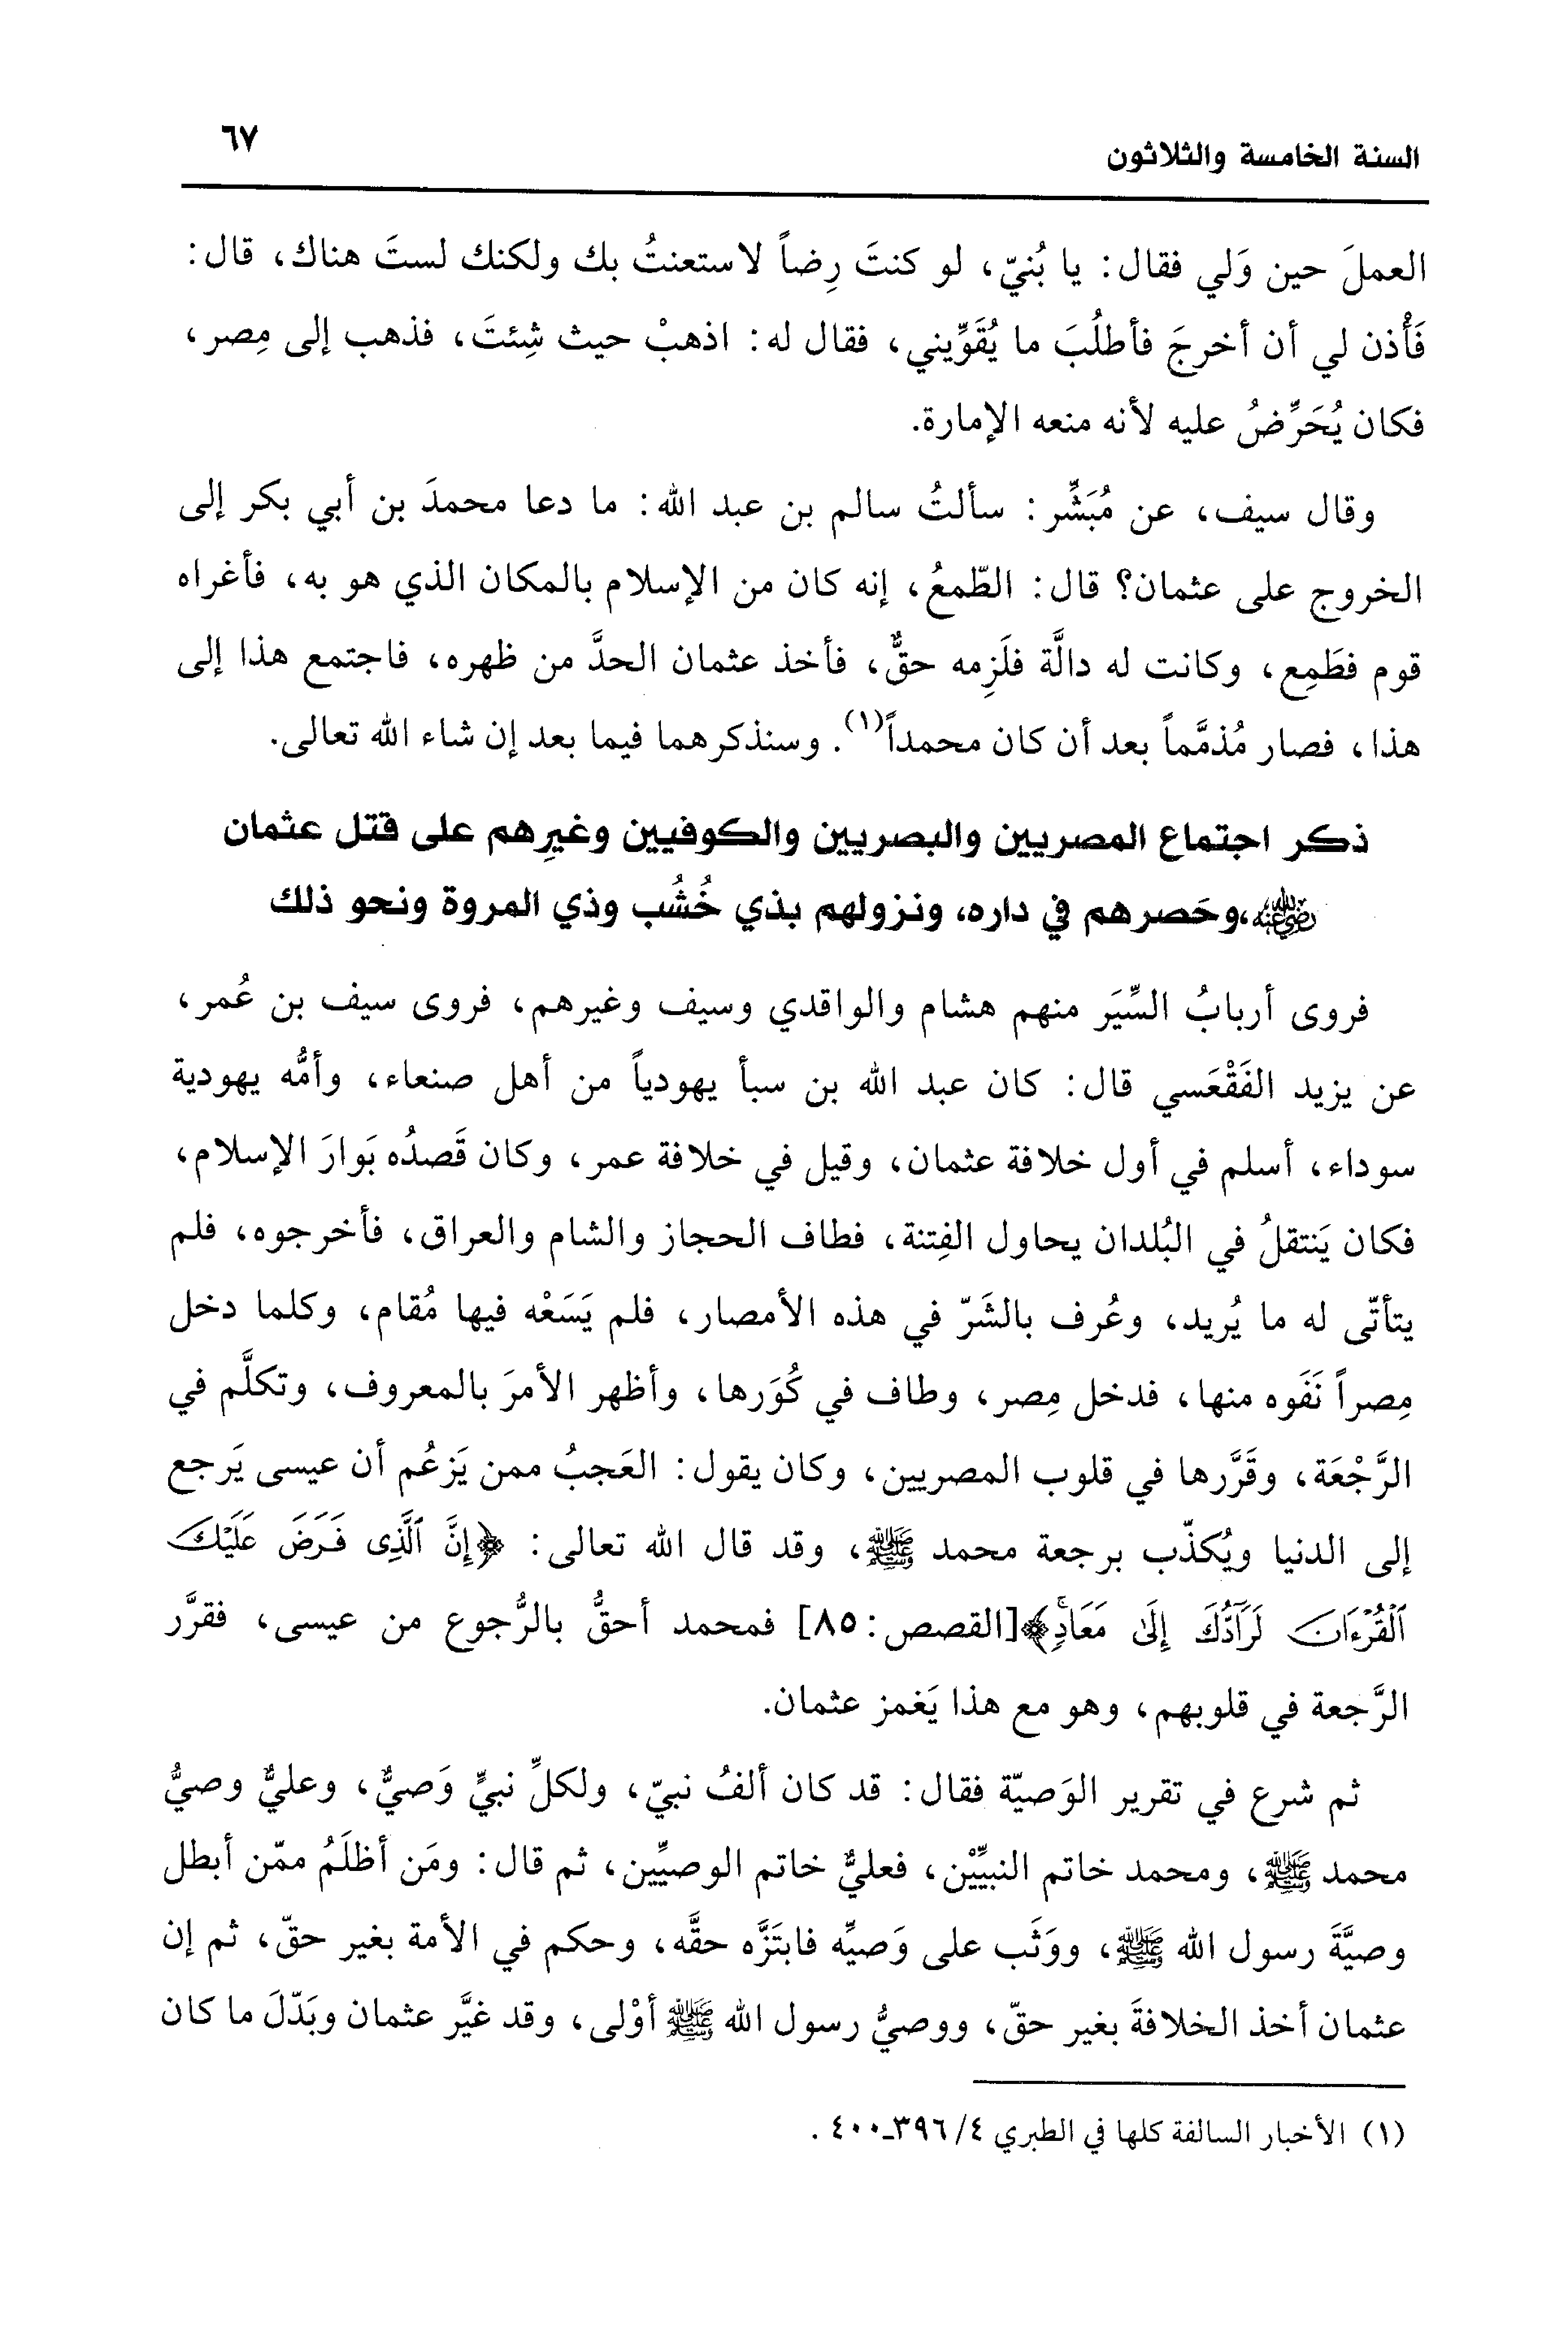 السنة الخامسة والثلاثون
٦٧
العملَ حين وَلي فقال: يا بُنيّ، لو كنتَ رِضاً لاستعنتُ بك ولكنك لستَ هناك، قال:
فَأْذن لي أن أخرجَ فأطلُبَ ما يُقَوِّيني، فقال له: اذهبْ حيث شِئتَ، فذهب إلى مِصر،
فكان يُحَرِّضُ عليه لأنه منعه الإمارة.
وقال سيف، عن مُبَشِّر: سألتُ سالم بن عبد الله: ما دعا محمدَ بن أبي بكر إلى
الخروج على عثمان؟ قال: الطّمعُ، إنه كان من الإسلام بالمكان الذي هو به، فأغراه
قوم فطَمِع، وكانت له دالَّة فلَزِمه حقٌّ، فأخذ عثمان الحدَّ من ظهره، فاجتمع هذا إلى
هذا، فصار مُذمَّماً بعد أن كان محمداً(١). وسنذكرهما فيما بعد إن شاء الله تعالى.
ذكر اجتماع المصريين والبصريين والكوفيين وغيرِهم على قتل عثمان
رضي الله عنه، وحَصرهم في داره، ونزولهم بذي خُشُب وذي المروة ونحو ذلك
فروى أربابُ السِّيَر منهم هشام والواقدي وسيف وغيرهم، فروى سيف بن عُمر،
عن يزيد الفَقْعَسي قال: كان عبد الله بن سبأ يهودياً من أهل صنعاء، وأمُّه يهودية
سوداء، أسلم في أول خلافة عثمان، وقيل في خلافة عمر، وكان قَصدُه بَوارَ الإسلام،
فكان يَنتقلُ في البُلدان يحاول الفِتنة، فطاف الحجاز والشام والعراق، فأخرجوه، فلم
يتأتّى له ما يُريد، وعُرف بالشَرّ في هذه الأمصار، فلم يَسَعْه فيها مُقام، وكلما دخل
مِصراً نَفَوه منها، فدخل مِصر، وطاف في كُوَرها، وأظهر الأمرَ بالمعروف، وتكلَّم في
الرَّجْعَة، وقَرَّرها في قلوب المصريين، وكان يقول: العَجبُ ممن يَزعُم أن عيسى يَرجع
إلى الدنيا ويُكذّب برجعة محمد ﷺ، وقد قال الله تعالى: ﴿إِنَّ ٱلَّذِى فَرَضَ عَلَيْكَ
ٱلْقُرْءَانَ لَرَآدُّكَ إِلَىٰ مَعَادٍ﴾ [القصص: ٨٥] فمحمد أحقُّ بالرُّجوع من عيسى، فقرَّر
الرَّجعة في قلوبهم، وهو مع هذا يَغمز عثمان.
ثم شرع في تقرير الوَصيّة فقال: قد كان ألفُ نبيّ، ولكلِّ نبيٍّ وَصيٌّ، وعليٌّ وصيُّ
محمد ﷺ، ومحمد خاتم النبيِّيْن، فعليٌّ خاتم الوصيِّين، ثم قال: ومَن أظلَمُ ممّن أبطل
وصيَّةَ رسول الله ﷺ، ووَثَب على وَصيِّه فابتَزَّه حقَّه، وحكم في الأمة بغير حقّ، ثم إن
عثمان أخذ الخلافةَ بغير حقّ، ووصيُّ رسول الله ﷺ أوْلى، وقد غيَّر عثمان وبَدّلَ ما كان
(١) الأخبار السالفة كلها في الطبري ٤/ ٣٩٦ـ٤٠٠.